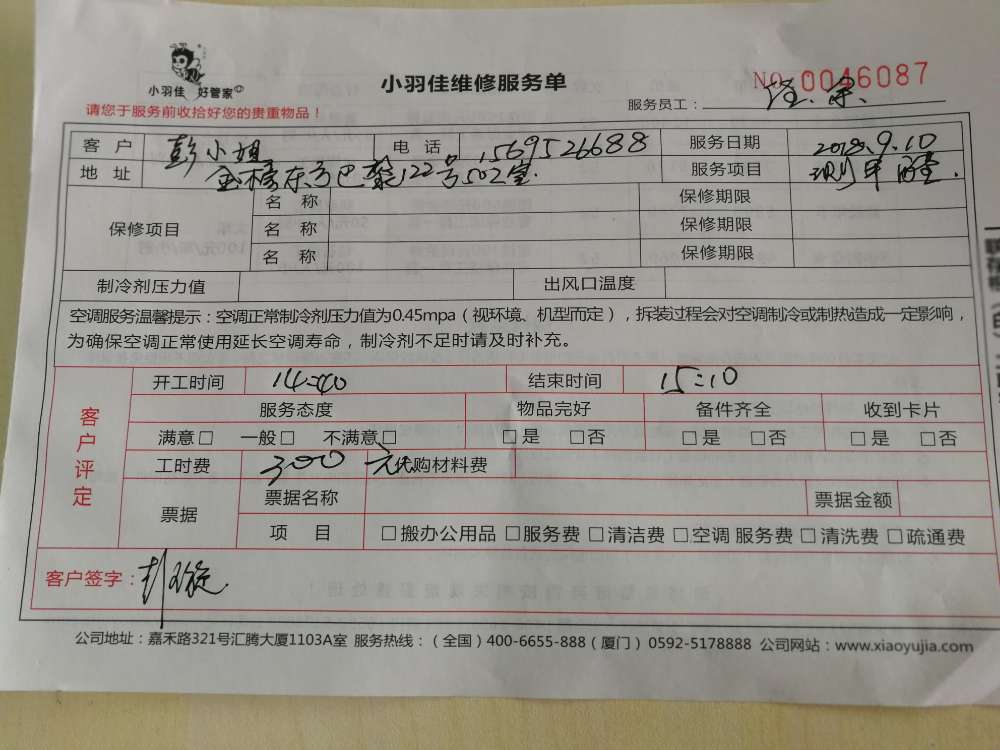 小羽佳 好管家
小羽佳维修服务单
NO.0046087
请您于服务前收拾好您的贵重物品！
服务员工：
客 户 彭小姐 电 话 1569526688 服务日期 2018.9.10
地 址 金榜东方巴黎122号502室. 服务项目
保修项目
名 称 保修期限
名 称 保修期限
名 称 保修期限
制冷剂压力值 出风口温度
空调服务温馨提示：空调正常制冷剂压力值为0.45mpa（视环境、机型而定），拆装过程会对空调制冷或制热造成一定影响，
为确保空调正常使用延长空调寿命，制冷剂不足时请及时补充。
客户评定
开工时间 14:40 结束时间 15:10
服务态度 物品完好 备件齐全 收到卡片
满意□ 一般□ 不满意□ □是 □否 □是 □否 □是 □否
工时费 300 元 代购材料费
票据
票据名称 票据金额
项 目 □搬办公用品 □服务费 □清洁费 □空调 服务费 □清洗费 □疏通费
客户签字：彭璇
公司地址：嘉禾路321号汇腾大厦1103A室 服务热线：（全国）400-6655-888（厦门）0592-5178888 公司网站：www.xiaoyujia.com